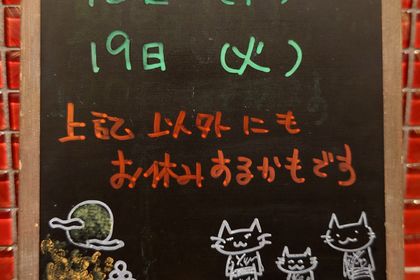 19日（火）
上記以外にも
お休みするかもです